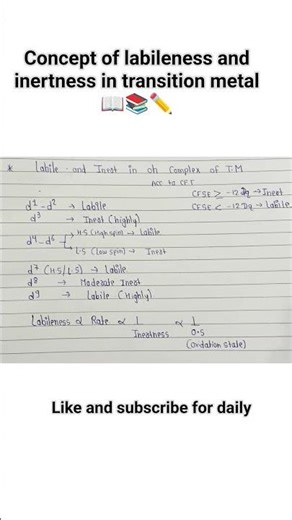 Concept of labileness and
inertness in transition metal
📖📚✏️
* Labile and Inert in oh Complex of T.M
Acc to CFT
CFSE ≥ -12 Dq → Inert
CFSE < -12 Dq → Labile
d¹-d² → Labile
d³ → Inert (highly)
d⁴-d⁶ → H.S (High spin) → Labile
L.S (Low spin) → Inert
d⁷ (HS/L.S) → Labile
d⁸ → Moderate Inert
d⁹ → Labile (Highly)
Labileness ∝ Rate ∝ 1/Inertness ∝ 1/O.S
(Oxidation state)
Like and subscribe for daily